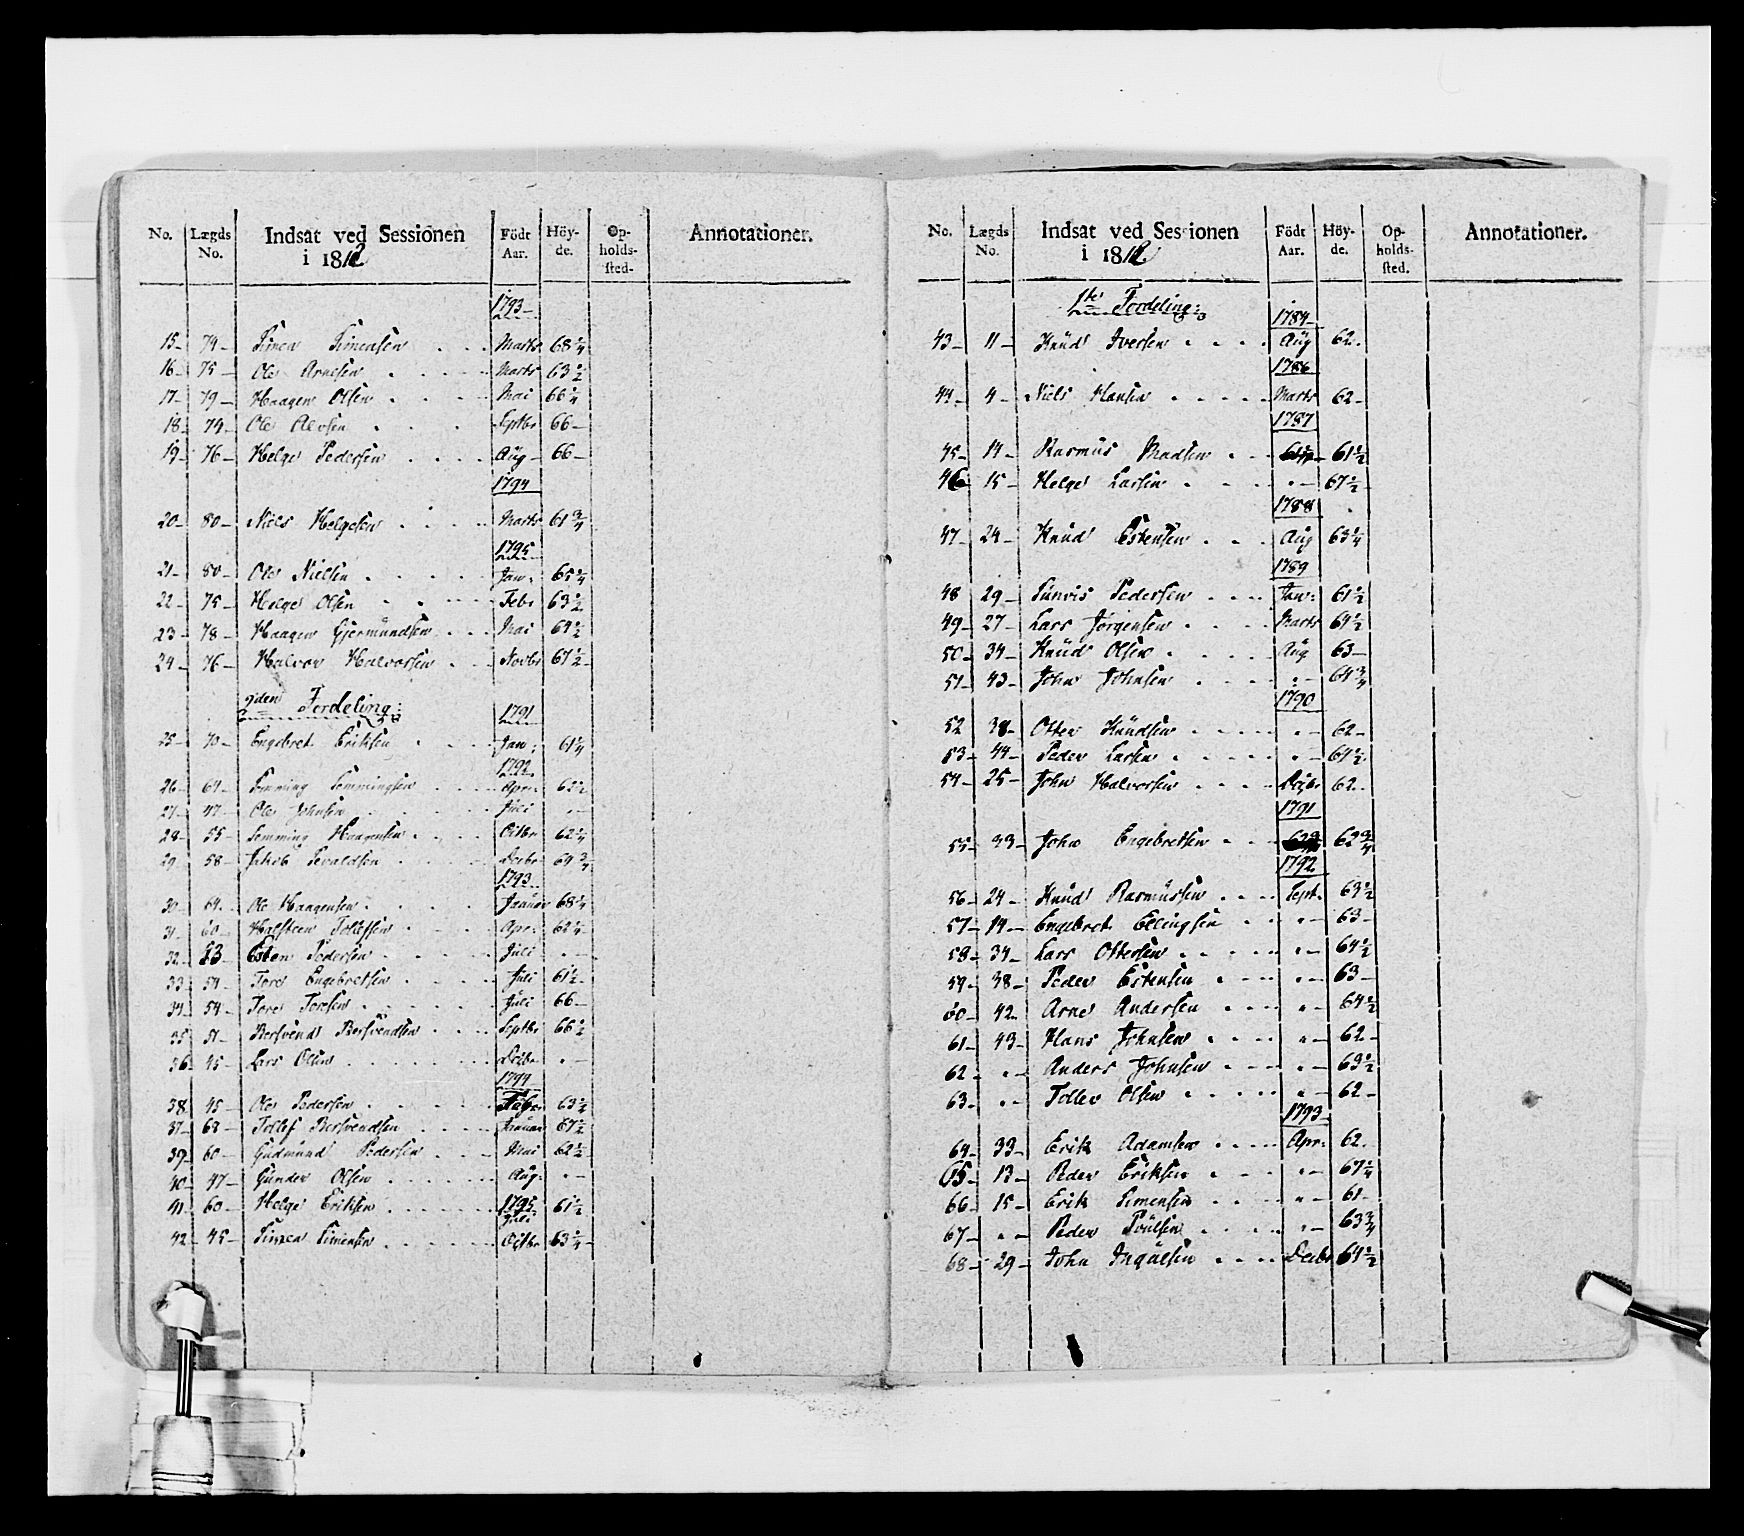 No. Lægds No. Indsat ved Sessionen i 1812 Födt Aar. Höyde. Opholdssted. Annotationer.
1793
15 74 Simen Simensen Marts 68¼
16 75 Ole Arnesen Marts 63½
17 79 Haagen Olsen Mai 66¼
18 74 Ole Septbr 66
19 76 Helge Pedersen Aug 66
1794
20 80 Niels Helgesen Marts 61¾
1795
21 80 Ole Nielsen Jan: 65¼
22 75 Helge Olsen Febr 63½
23 78 Haagen Gjermundsen Mai 64½
24 76 Halvor Halvorsen Novbr 67½
2den Fordeling:
1791
25 70 Engebret Eriksen Jan: 61¼
1792
26 64 Semming Semmingsen Apr:
27 47 Ole Johnsen Juli
28 55 Semming Haagensen Octbr 62¼
29 58 Jakob Decbr 64¾
1793
30 64 Ole Haagensen Januar 68¼
31 60 Tollefsen Apr: 62¼
32 Esten Pedersen Juli
33 54 Tore Engebretsen Juli 61½
34 54 Tore Toresen Juli 66
35 51 Bersvend Bersvendsen Septbr 66½
36 45 Lars Olsen
1794
38 45 Ole Pedersen 63½
37 68 Tollef Bersvendsen Januar 67½
39 60 Gudmund Pedersen Mai 62½
40 47 Gunder Olsen Aug:
41 60 Helge Eriksen 1795 Juli 61½
42 45 Simen Simensen Octbr 63¼
No. Lægds No. Indsat ved Sessionen i 1812 Födt Aar. Höyde. Opholdssted. Annotationer.
1ste Fordeling:
1784
43 11 Knud Iversen Aug 62
1786
44 4 Niels Hansen Marts 62
1787
45 14 Rasmus Madsen 61½
46 15 Helge Larsen " 67½
1788
47 24 Knud Estensen Aug 63¼
1789
48 29 Pedersen Jan: 61½
49 27 Lars Jørgensen Marts 64½
50 34 Knud Olsen Aug 63
51 43 John Johnsen " 64¾
1790
52 38 Otter Knudsen " 62
53 44 Peder Larsen " 64½
54 25 John Halvorsen 62
1791
55 33 John Engebretsen 62¾
1792
56 24 Knud Rasmussen Sept. 63½
57 14 Engebret Ellingsen " 63
58 34 Lars Ottersen " 64½
59 38 Peder Estensen " 63
60 42 Arne Andersen " 64½
61 43 Hans Johnsen " 62
62 " Anders Johnsen " 63½
63 " Toller Olsen " 62
1793
64 33 Erik Adamsen Apr: 62
65 13 Peder Eriksen " 67¼
66 15 Erik Simensen " 61
67 " Peder Poulsen " 63¾
68 29 John Decbr 64½